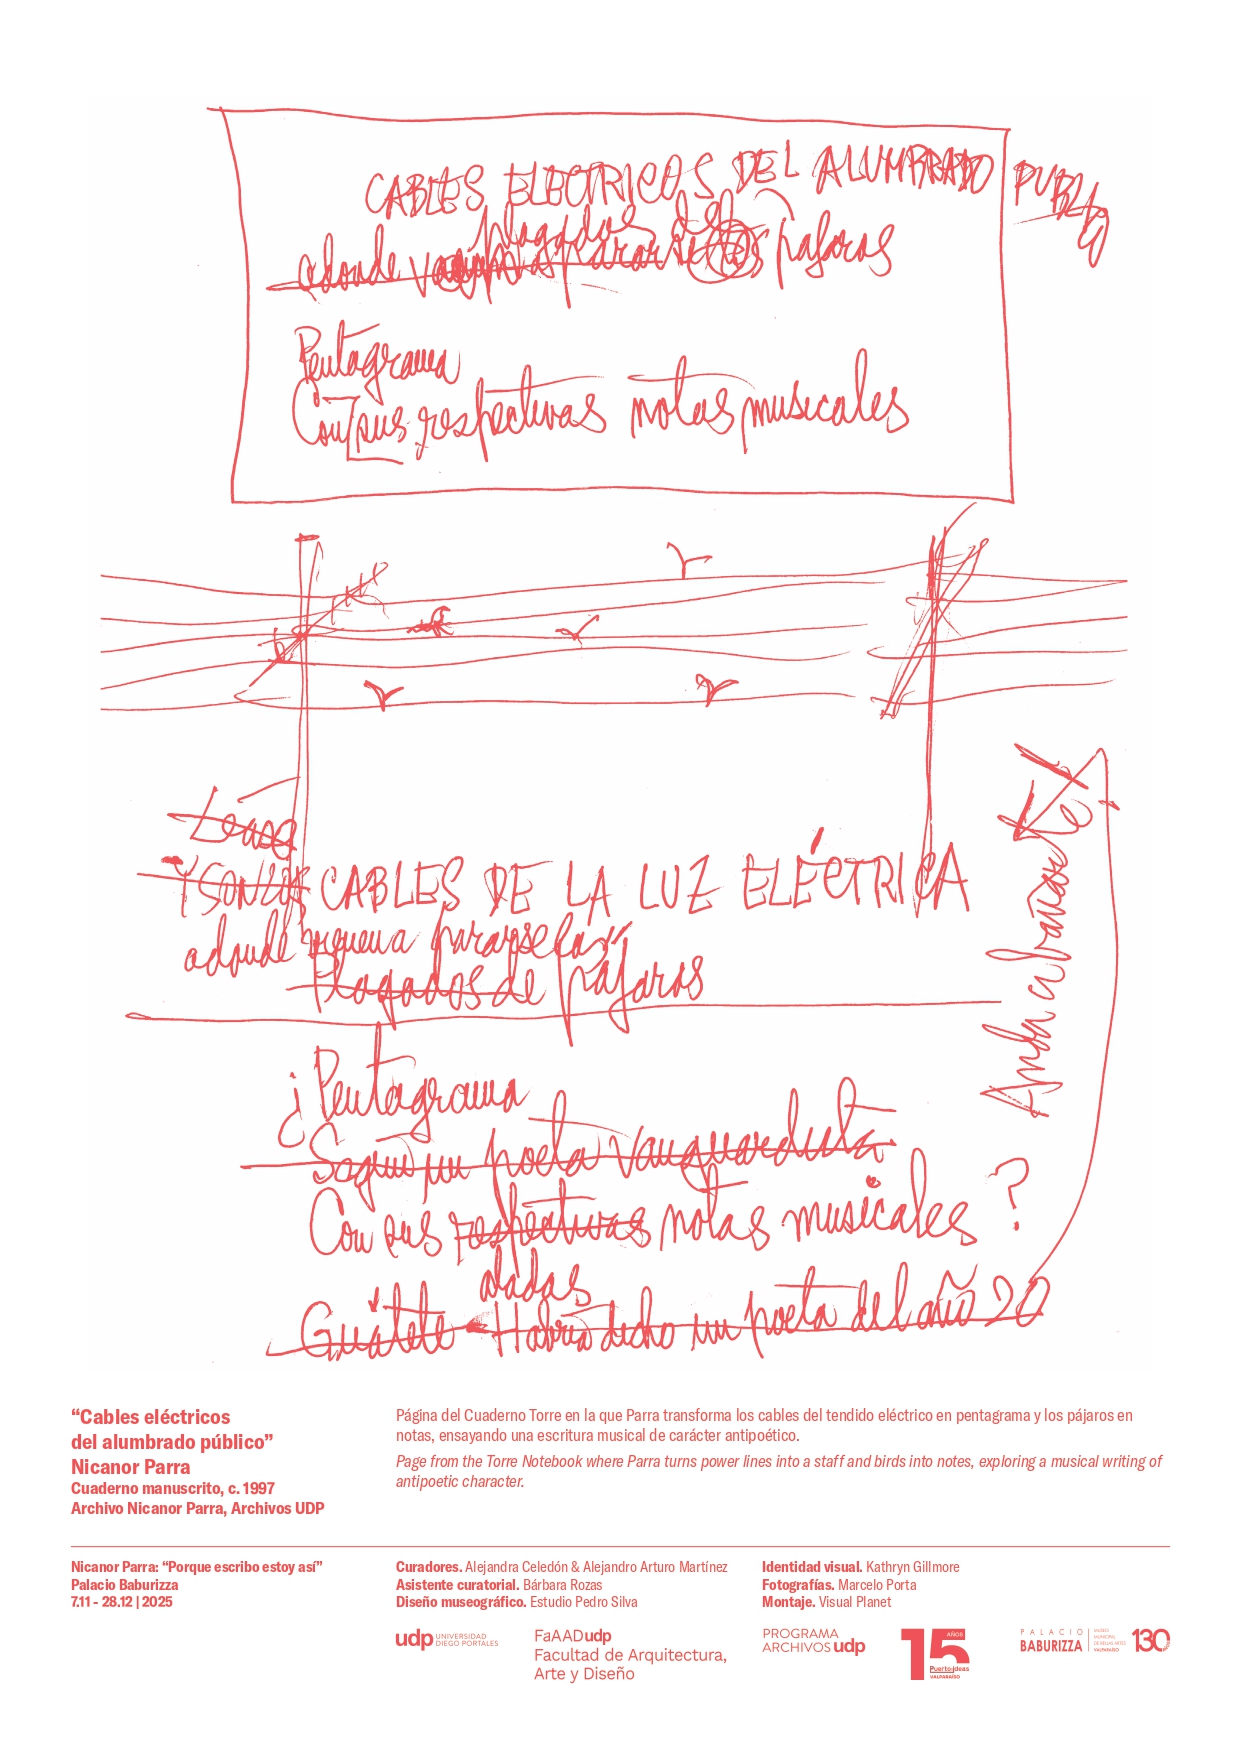 CABLES ELECTRICOS DEL ALUMBRADO PUBLI
plagados de
adonde van a pararse los pájaros
Pentagrama
Con sus respectivas notas musicales
Y SON LOS CABLES DE LA LUZ ELÉCTRICA
adonde vienen a pararse los
Plagados de pájaros
¿Pentagrama
Según un poeta vanguardista
Con sus respectivas notas musicales?
aladas
Guátete Habría dicho un poeta del año 20
“Cables eléctricos
del alumbrado público”
Nicanor Parra
Cuaderno manuscrito, c. 1997
Archivo Nicanor Parra, Archivos UDP
Página del Cuaderno Torre en la que Parra transforma los cables del tendido eléctrico en pentagrama y los pájaros en
notas, ensayando una escritura musical de carácter antipoético.
Page from the Torre Notebook where Parra turns power lines into a staff and birds into notes, exploring a musical writing of
antipoetic character.
Nicanor Parra: “Porque escribo estoy así”
Palacio Baburizza
7.11 - 28.12 | 2025
Curadores. Alejandra Celedón & Alejandro Arturo Martínez
Asistente curatorial. Bárbara Rozas
Diseño museográfico. Estudio Pedro Silva
Identidad visual. Kathryn Gillmore
Fotografías. Marcelo Porta
Montaje. Visual Planet
udp UNIVERSIDAD
DIEGO PORTALES
FaAADudp
Facultad de Arquitectura,
Arte y Diseño
PROGRAMA
ARCHIVOS udp
15 AÑOS
Puerto de Ideas
VALPARAÍSO
PALACIO
BABURIZZA
MUSEO
MUNICIPAL
DE BELLAS ARTES
VALPARAÍSO
130